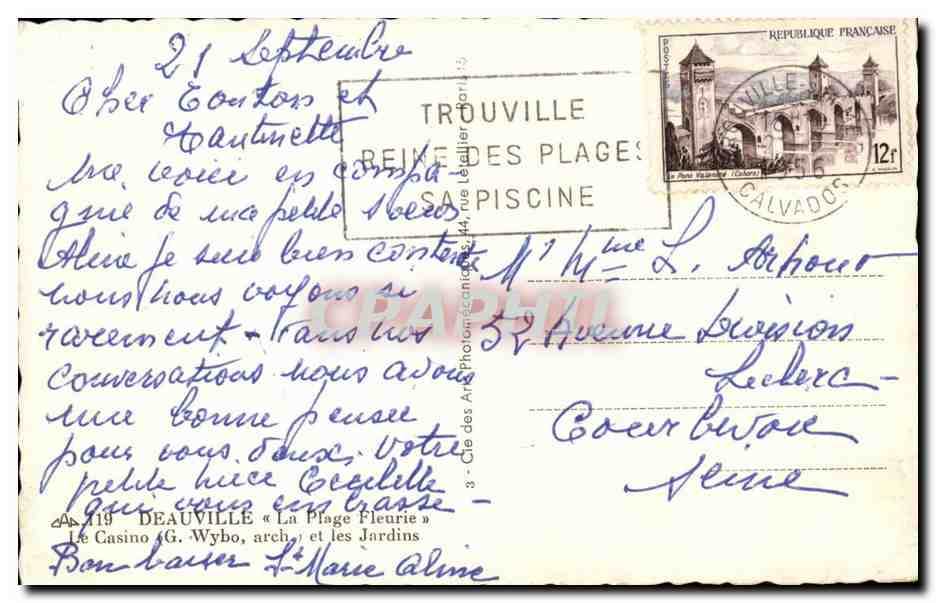 21 Septembre
Cher Tonton et
Tantinette
Me voici en compa-
gnie de ma petite soeur
Aline je suis bien contente
nous nous voyons si
rarement - Dans nos
conversations nous avons
une bonne pensée
pour vous deux. Votre
petite nièce
qui vous embrasse -
119 DEAUVILLE « La Plage Fleurie »
Le Casino (G. Wybo, arch.) et les Jardins
Bon baiser Sr Marie Aline
3 - Cie des Arts Photomécaniques, 44, rue Letellier - Paris 15
TROUVILLE
REINE DES PLAGES
SA PISCINE
REPUBLIQUE FRANÇAISE
POSTES
12f
Le Pont Valentré (Cahors)
CALVADOS
Mr Mme L.
52 Avenue Division
Leclerc -
Courbevoie
Seine
CRAPHTI